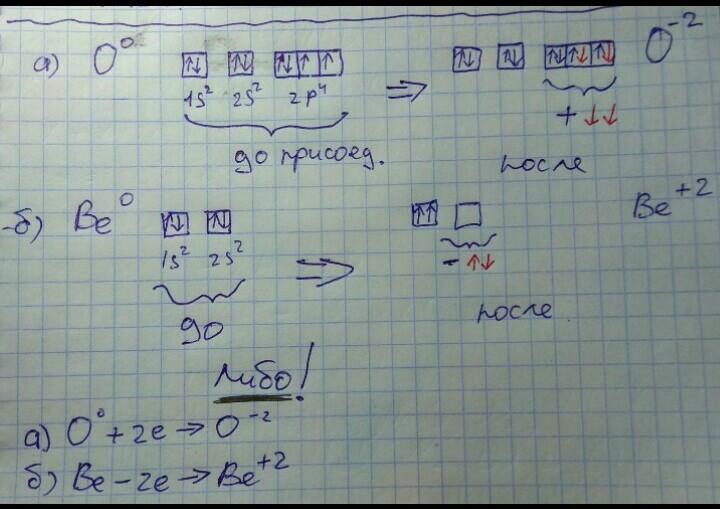 а) O⁰ ↑↓ ↑↓ ↑↓ ↑ ↑ ⇒ ↑↓ ↑↓ ↑↓ ↑↓ ↑↓ O⁻²
1s² 2s² 2p⁴ + ↓↓
до присоед. после
б) Be⁰ ↑↓ ↑↓ ⇒ ↑↑ Be⁺²
1s² 2s² - ↑↓
до после
Либо!
а) O⁰ + 2e → O⁻²
б) Be - 2e → Be⁺²